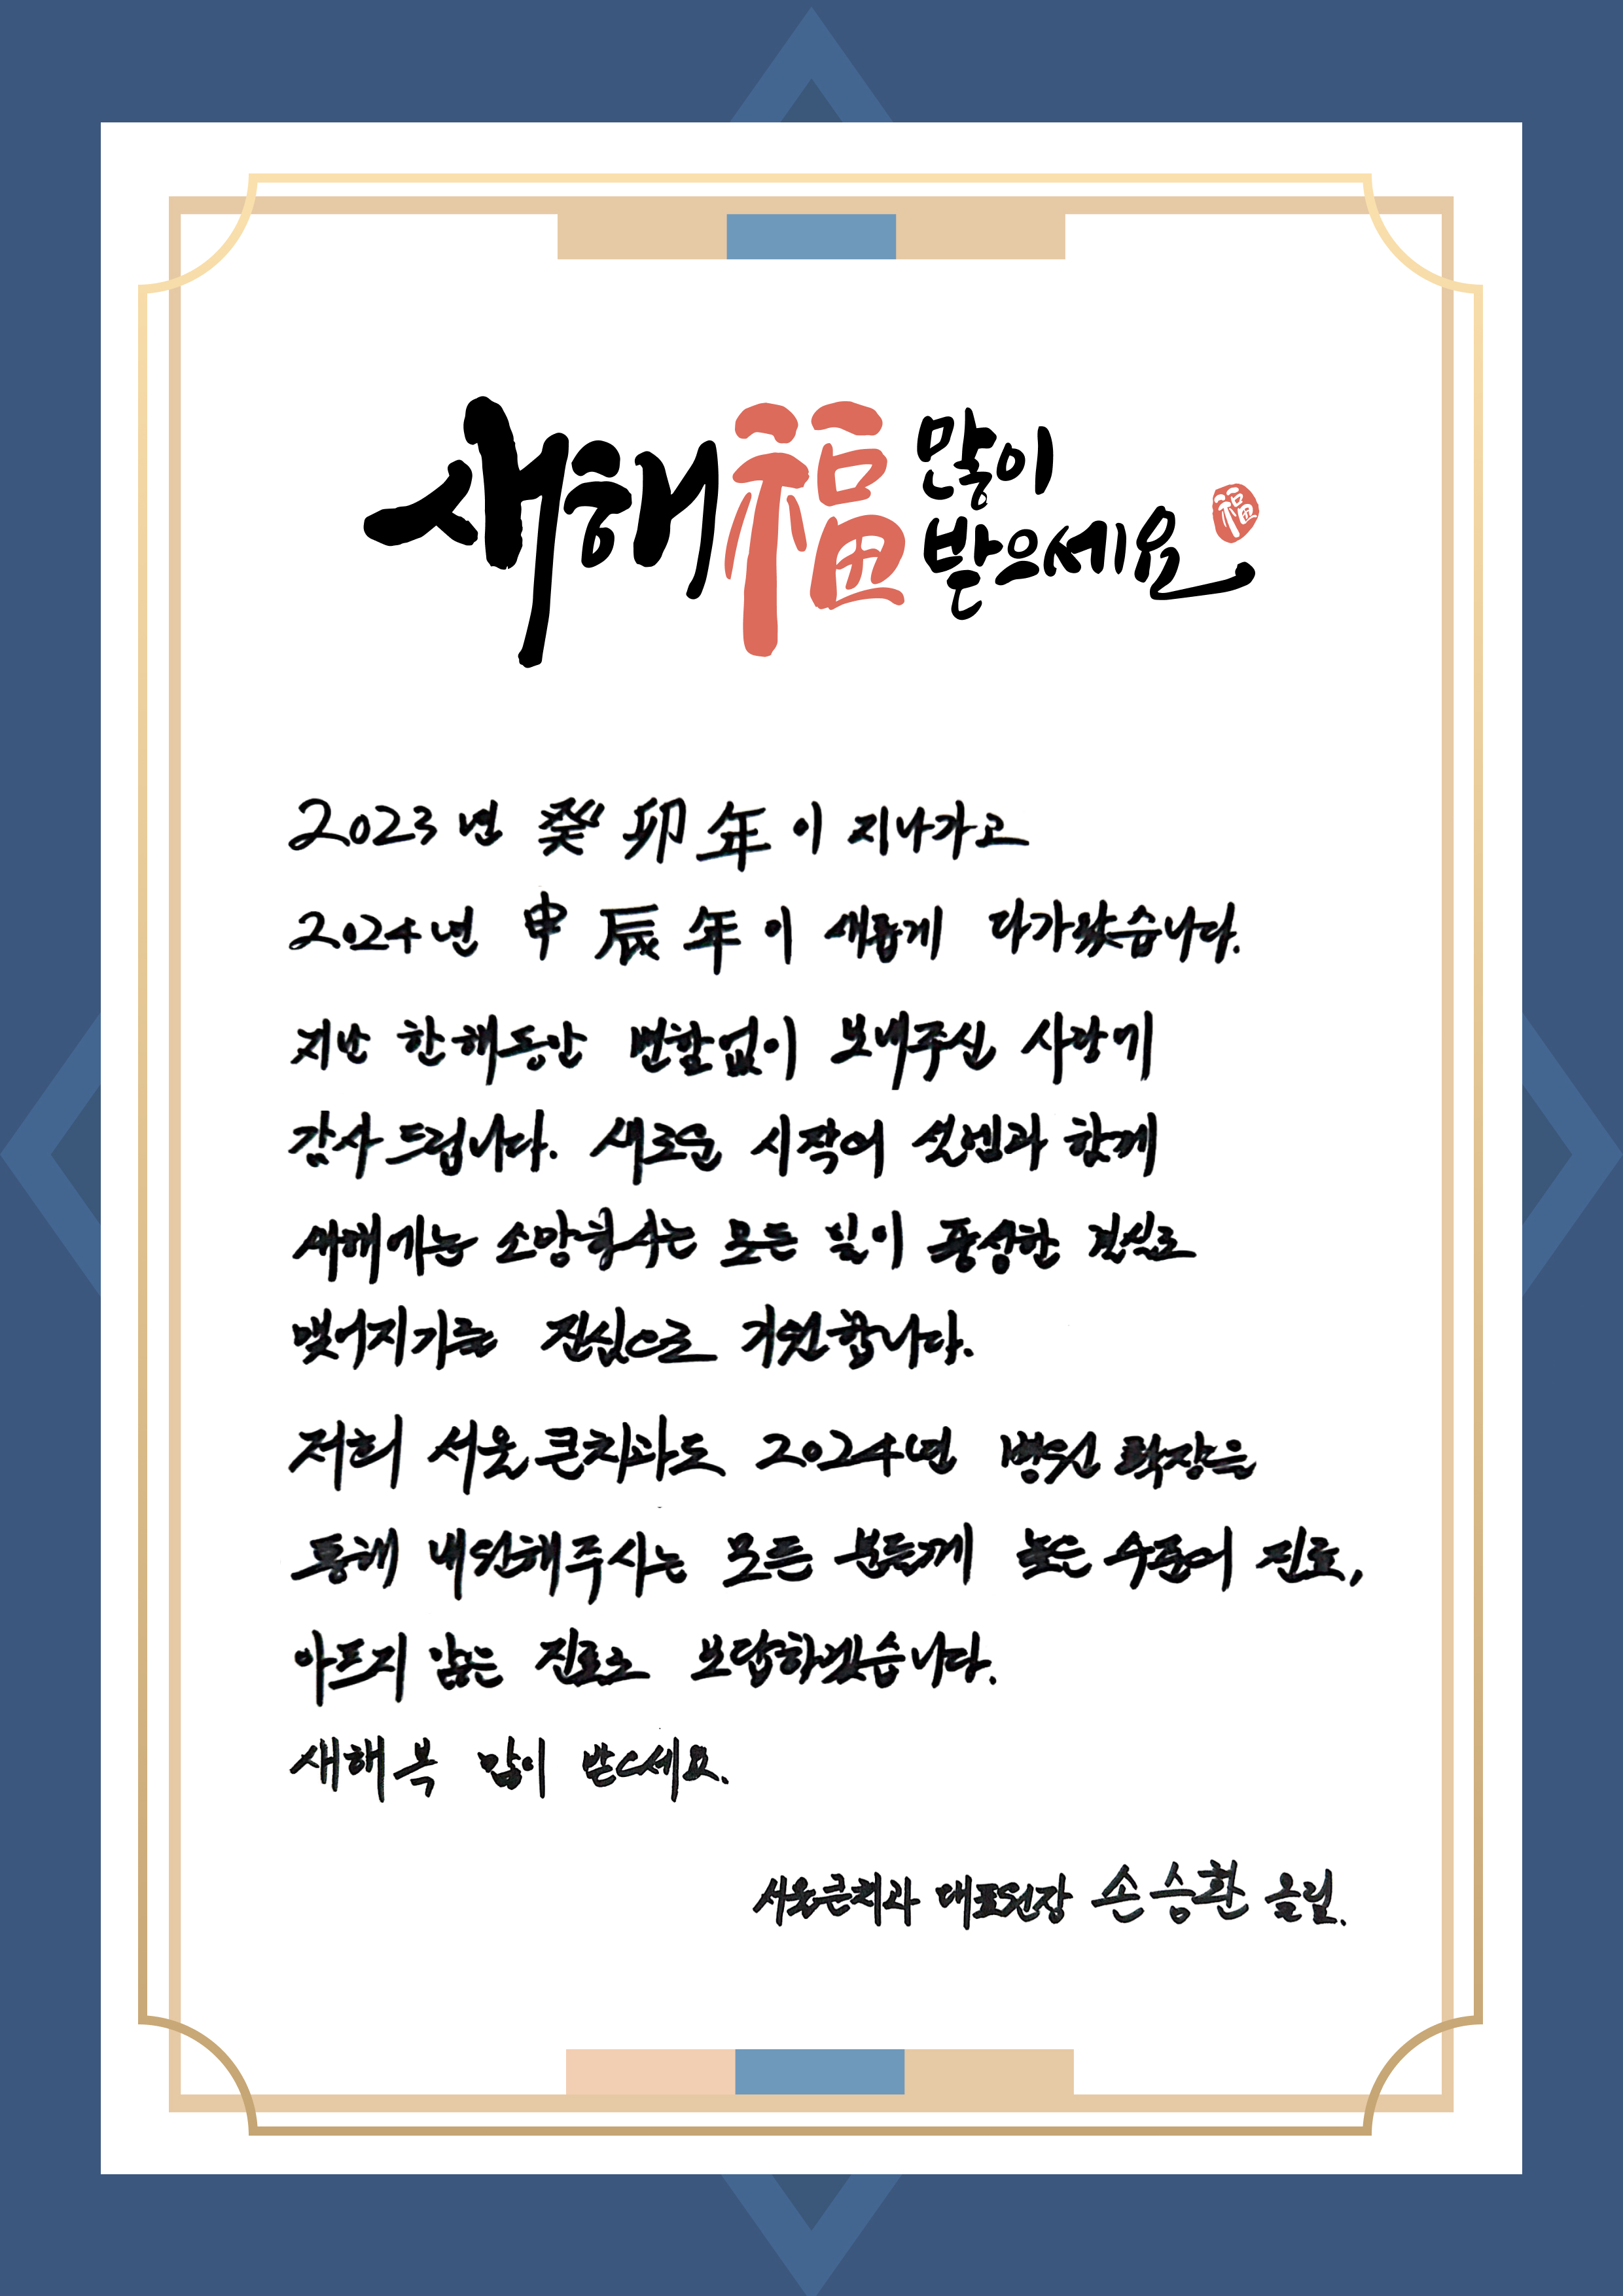 새해 福 많이
받으세요
福
2023년 癸卯年이 지나가고
2024년 申辰年이 새롭게 다가왔습니다.
지난 한해동안 변함없이 보내주신 사랑에
감사드립니다. 새로운 시작의 설렘과 함께
새해에는 소망하시는 모든 일이 풍성한 결실로
맺어지기를 진심으로 기원합니다.
저희 서울큰치과도 2024년 병원 확장을
통해 내원해주시는 모든 분들께 높은 수준의 진료,
아프지 않은 진료로 보답하겠습니다.
새해 복 많이 받으세요.
서울큰치과 대표원장 손승환 올림.